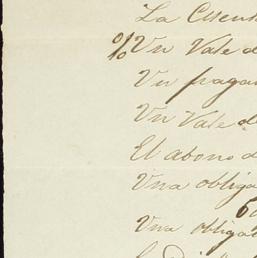 La
% Un Vale d
Un pagar
Un Vale d
El abono d
Una obliga
Una obliga